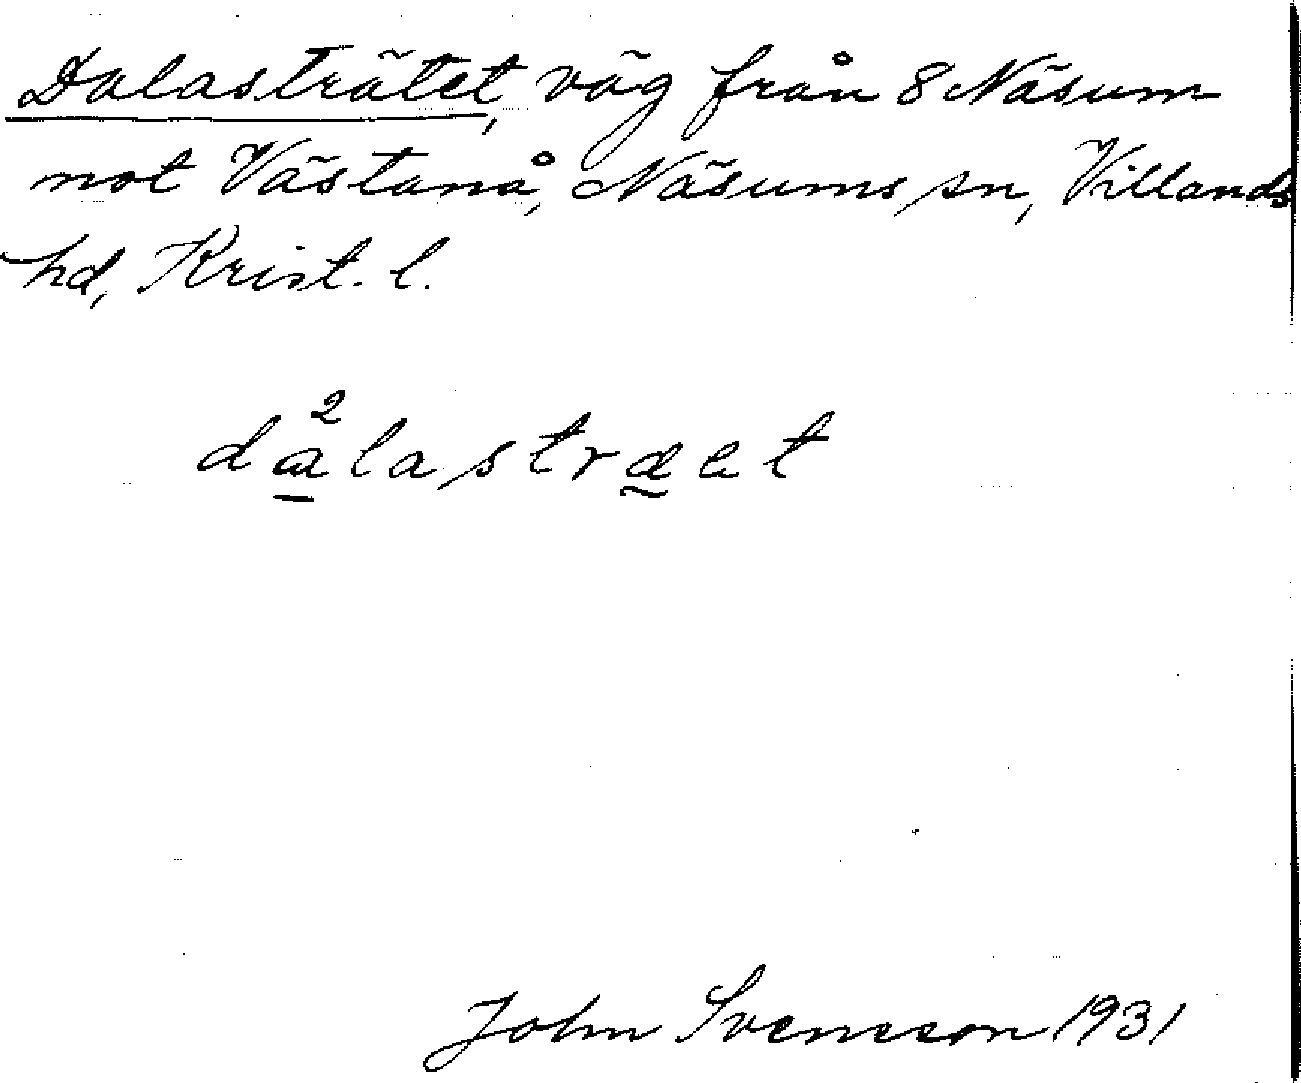 Dalasträtet, väg från 8 Näsum
mot Västanå, Näsums sn, Villands
hd, Krist. l.
2
dalastræet
John Svensson 1931